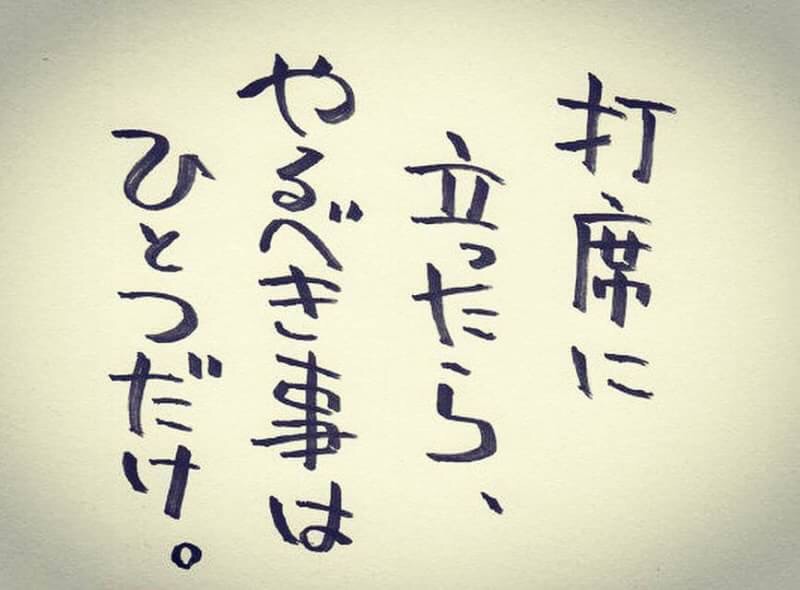 打席に
立ったら、
やるべき事は
ひとつだけ。